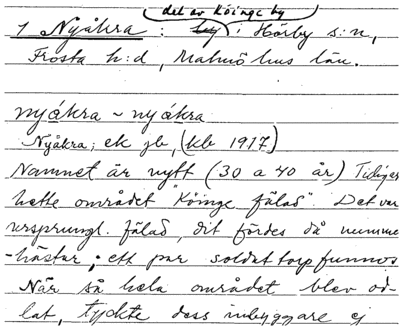 det av Köinge by
1 Nyåkra : by i Hörby s:n,
Frosta h:d, Malmöhus län.
nyákra ~ nyákra
Nyåkra; ek jb, (kb 1917)
Namnet är nytt (30 a 40 år) Tidigare
hette området "Köinge fälad". Det var
ursprungl. fälad, dit fördes då numme-
-hästar; ett par soldattorp funnos
När så hela området blev od-
lat, tyckte dess inbyggare ej